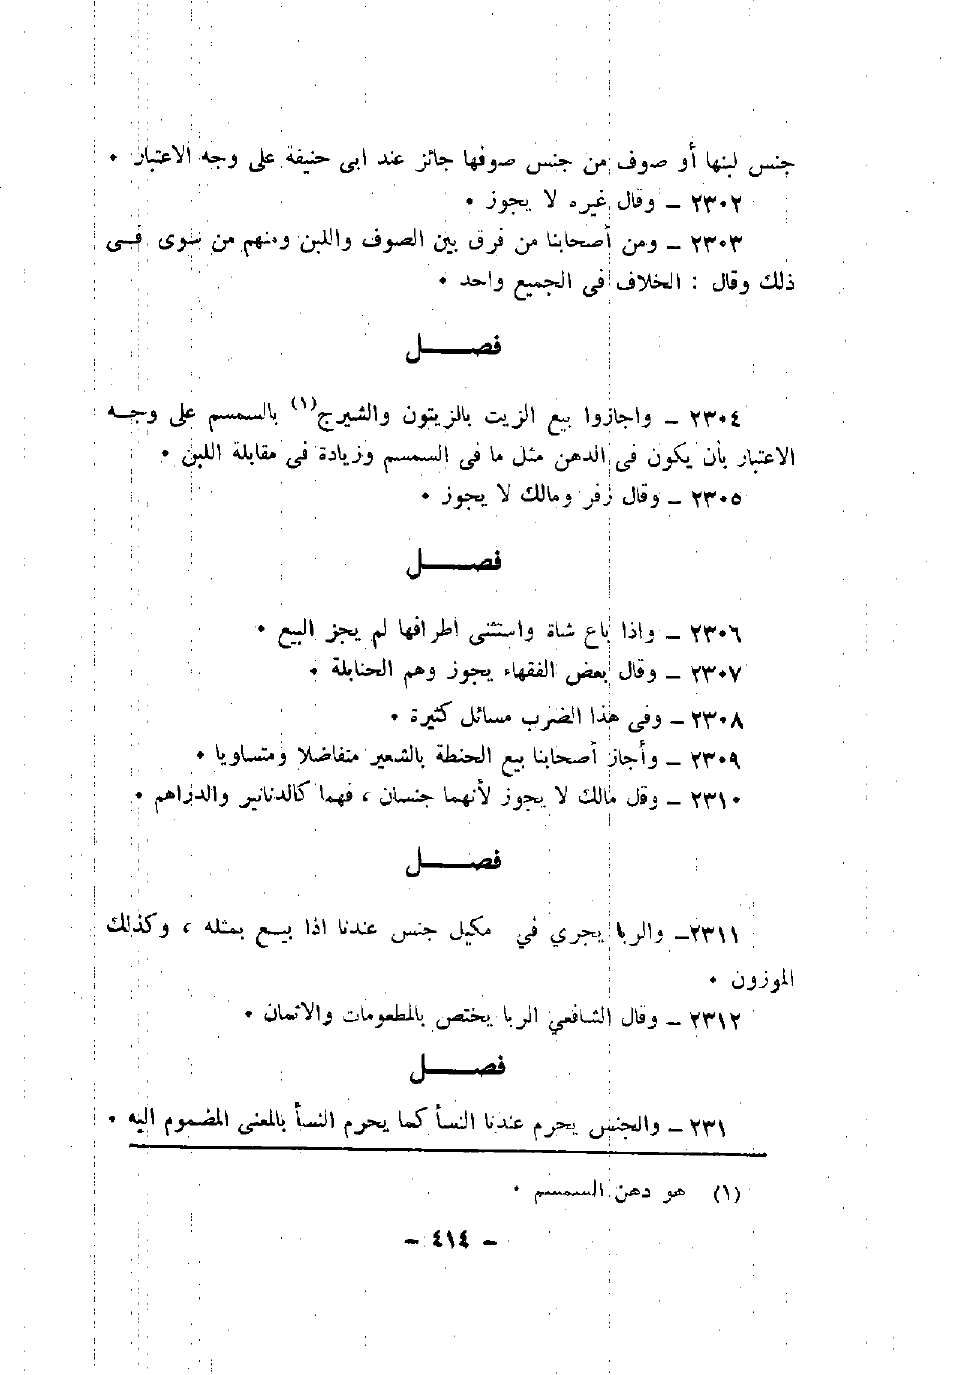 جنس لبنها أو صوف من جنس صوفها جائز عند ابى حنيفة على وجه الاعتبار ٠
٢٣٠٢ – وقال غيره لا يجوز ٠
٢٣٠٣ – ومن أصحابنا من فرق بين الصوف واللبن ومنهم من سوى فى
ذلك وقال : الخلاف فى الجميع واحد ٠
فصل
٢٣٠٤ – واجازوا بيع الزيت بالزيتون والشيرج(١) بالسمسم على وجه
الاعتبار بأن يكون فى الدهن مثل ما فى السمسم وزيادة فى مقابلة اللبن ٠
٢٣٠٥ – وقال زفر ومالك لا يجوز ٠
فصل
٢٣٠٦ – واذا باع شاة واستثنى اطرافها لم يجز البيع ٠
٢٣٠٧ – وقال بعض الفقهاء يجوز وهم الحنابلة ٠
٢٣٠٨ – وفى هذا الضرب مسائل كثيرة ٠
٢٣٠٩ – وأجاز أصحابنا بيع الحنطة بالشعير متفاضلا ومتساويا ٠
٢٣١٠ – وقل مالك لا يجوز لأنهما جنسان ، فهما كالدنانير والدراهم ٠
فصل
٢٣١١– والربا يجري في مكيل جنس عندنا اذا بيع بمثله ، وكذلك
الموزون ٠
٢٣١٢ – وقال الشافعي الربا يختص بالمطعومات والاثمان ٠
فصل
٢٣١ – والجنس يحرم عندنا النسأ كما يحرم النسأ بالمعنى المضموم اليه ٠
(١) هو دهن السمسم ٠
– ٤١٤ –